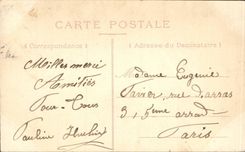 CARTE POSTALE
Correspondance
Adresse du Destinataire
Meilles merci
Amitiés
Pour Tous
Pauline
Madame Eugenie
rue d'arras
3, 5ème arrond
Paris